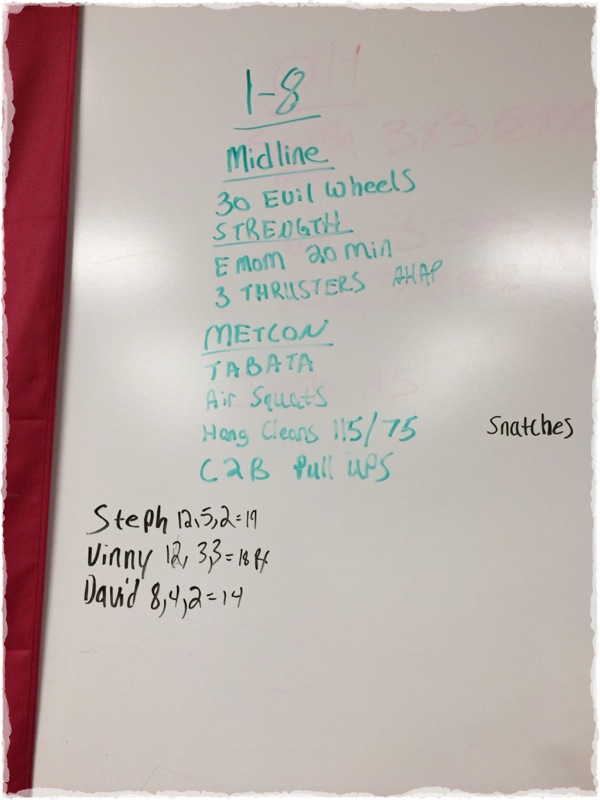 1-8
Midline
30 Evil Wheels
STRENGTH
EMOM 20 min
3 THRUSTERS AHAP
METCON
TABATA
Air Squats
Hang Cleans 115/75
Snatches
C2B Pull UPS
Steph 12,5,2=19
Vinny 12,3,3=18 Rx
David 8,4,2=14